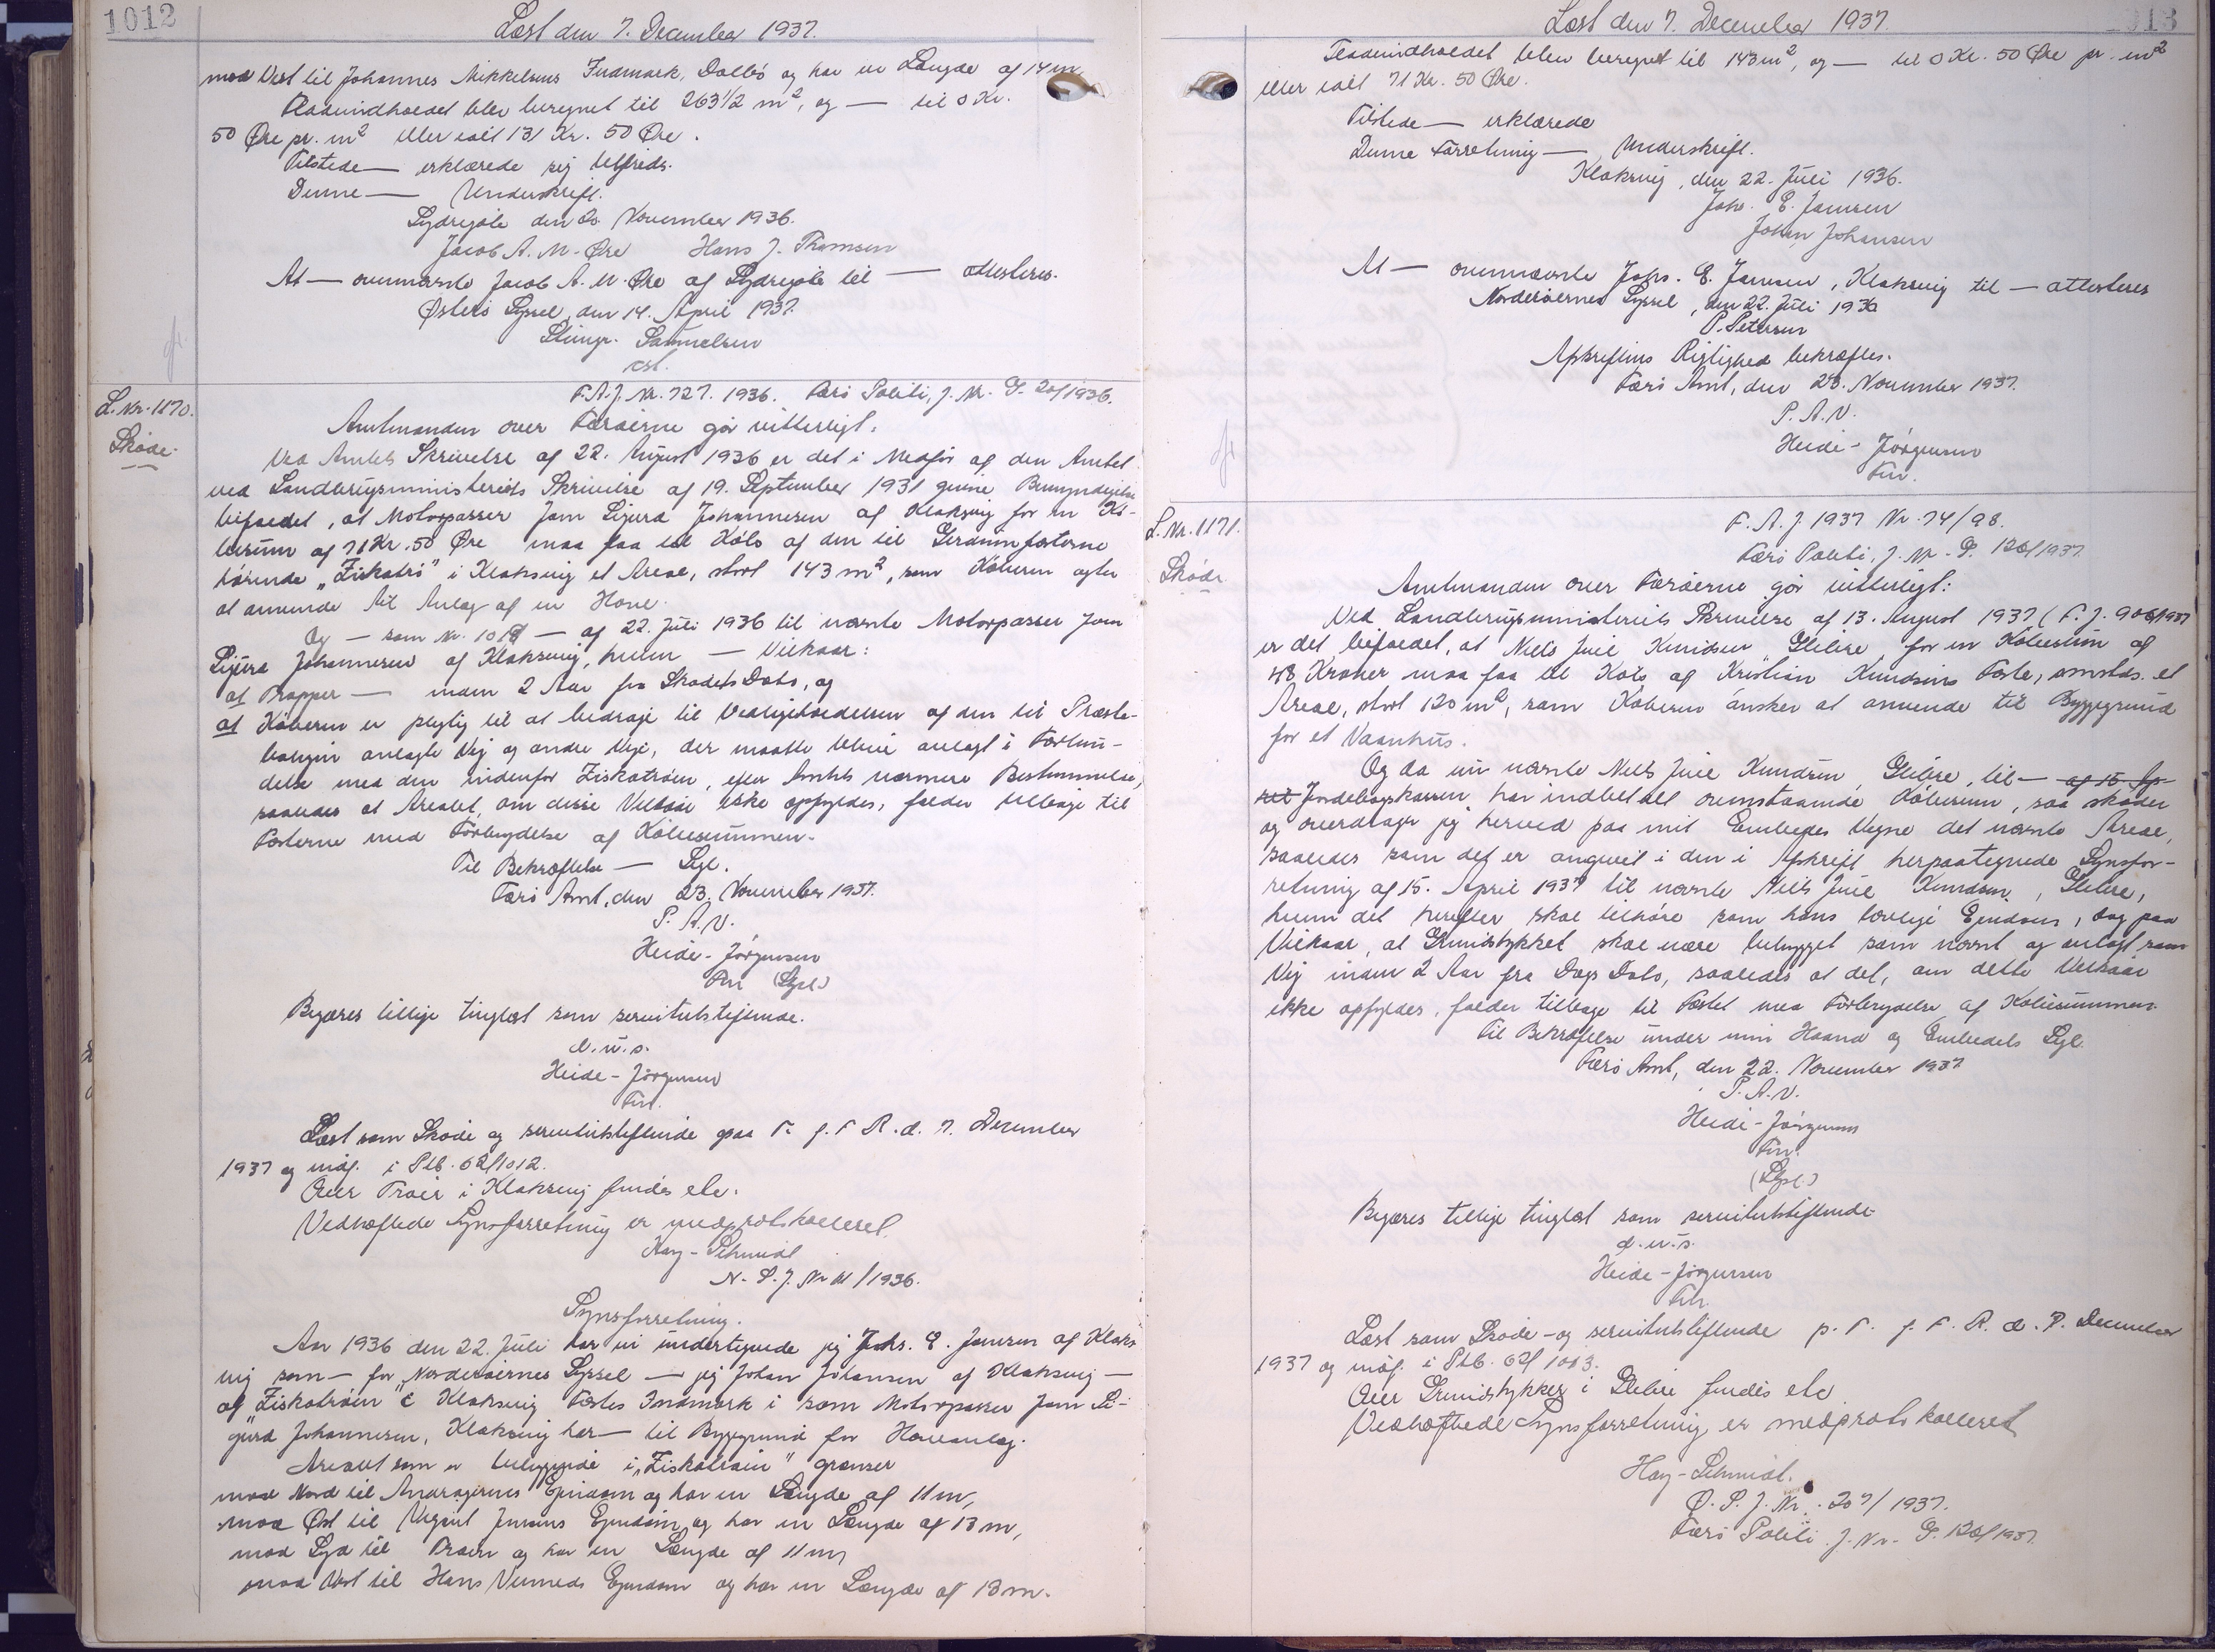 1012
Læst den 7. December 1937.
mod Vest til Johannes Mikkelsens Indmark, Dalbø og har en Længde af 14 m,
Fladeindholdet blev beregnet til 263 1/2 m², og — til 0 Kr.
50 Øre pr. m² eller ialt 131 Kr. 50 Øre.
Tilstede — erklærede sig tilfreds.
Denne — Underskrift.
Sydregøte den November 1936.
Jacob A. M. Øre Hans J. Thomsen
At — ovennævnte Jacob A. M. Øre af Sydregøte til — attesteres.
Østerø Syssel, den 14. April 1937.
Samuelsen
cst.
L. Nr. 1170.
Skøde.
F.A.J. Nr. 727. 1936. Færø Politi, J. Nr. P. 20/1936.
Amtmanden over Færøerne gør vitterligt:
Ved Amtets Skrivelse af 22. August 1936 er det i Medfør af den Amtet
ved Landbrugsministeriets Skrivelse af 19. September 1931 givne Bemyndigelse
bifaldet, at Motorpasser Jom Sigurd Johannesen af Klaksvig for en Kø-
besum af 71 Kr. 50 Øre maa faa til Købs af den til Gerdumfæsterne
hørende „Ziskatrø" i Klaksvig et Areal, stort 143 m², som Køberen agter
at anvende til Anlæg af en Have.
Og — som Nr. 1018 — af 22. Juli 1936 til nævnte Motorpasser Jom
Sigurd Johannesen af Klaksvig, hvem — Vilkaar:
at Trapper — inden 2 Aar fra Skødets Dato, og
at Køberen er pligtig til at bidrage til Vedligeholdelsen af den til Præste-
boligen anlagte Vej og andre Veje, der maatte blive anlagt i Forbin-
delse med den indenfor Ziskatrøen, efter Amtets nærmere Bestemmelse,
saaledes at Arealet, om disse Vilkaar ikke opfyldes, falder tilbage til
Fæsterne med Fortrydelse af Købesummen.
Til Bekræftelse — Segl.
Færø Amt, den 23. November 1937.
P. A. V.
Heide-Jørgensen
Fm (Segl.)
Begæres tillige tinglæst som servitutstiftende.
d.u.s.
Heide-Jørgensen
Fm.
Læst som Skøde og servitutstiftende paa F. f. F R. d. 7. December
1937 og indf. i Ptb. 62/1012.
Over Trøer i Klaksvig findes etc.
Vedhæftede Synsforretning er medprotokolleret.
Hay-Schmidt
N. S. J. Nr 11/1936.
Synsforretning.
Aar 1936 den 22. Juli har vi undertegnede jeg Johs. E. Jensen af Klaks
vig som — for Norderøernes Syssel — jeg Johan Johansen af Klaksvig —
af „Ziskatrøen" i Klaksvig Fæstes Indmark i som Motorpasser Jom Si-
gurd Johannesen, Klaksvig har — til Byggegrund for Haveanlæg.
Arealet som er beliggende i „Ziskatrøen" grænser
mod Nord til Andragerens Ejendom og har en Længde af 11 m,
mod Øst til Jensens Ejendom og har en Længde af 13 m,
mod Syd til Trøen og har en Længde af 11 m,
mod Vest til Hans Ejendom og har en Længde af 13 m.
1013
Læst den 7. December 1937.
Fladeindholdet blev beregnet til 143 m², og — til 0 Kr. 50 Øre pr. m²
eller ialt 71 Kr. 50 Øre.
Tilstede — erklærede
Denne Forretning — Underskrift.
Klaksvig, den 22. Juli 1936.
Johs. E. Jensen
Johan Johansen
At — ovennævnte Johs. E. Jensen, Klaksvig til — attesteres
Norderøernes Syssel, den 22. Juli 1936
P. Petersen
Afskriftens Rigtighed bekræftes.
Færø Amt, den 23. November 1937.
P. A. V.
Heide-Jørgensen
Fm.
L. Nr. 1171.
Skøde
F. A. J 1937 Nr. 74/98.
Færø Politi, J. Nr. P. 126/1937
Amtmanden over Færøerne gør vitterligt:
Ved Landbrugsministeriets Skrivelse af 13. August 1937 (F. J. 906/1937
er det bifaldet, at Niels Juel Knudsen, Glibre, for en Købesum af
48 Kroner maa faa til Købs af Kristian Knudsens Fæste, smstds. et
Areal, stort 120 m², som Køberen ønsker at anvende til Byggegrund
for et Vaanhus.
Og da nu nævnte Niels Juel Knudsen, Glibre, til — af 15. Ap-
ril Jordebogskassen har indbetalt ovenstaaende Købesum, saa skøder
og overdrager jeg herved paa mit Embedes Vegne det nævnte Areal,
saaledes som det er angivet i den i Afskrift herpaategnede Synsfor-
retning af 15. April 1937 til nævnte Niels Juel Knudsen, Glibre,
hvem det herefter skal tilhøre som hans lovlige Ejendom, dog paa
Vilkaar, at Grundstykket skal være bebygget som nævnt og anlagt som
Vej inden 2 Aar fra Dags Dato, saaledes at det, om dette Vilkaar
ikke opfyldes, falder tilbage til Fæstet med Fortrydelse af Købesummen.
Til Bekræftelse under min Haand og Embedets Segl.
Færø Amt, den 22. November 1937
P. A. V.
Heide-Jørgensen
Fm.
(Segl.)
Begæres tillige tinglæst som servitutstiftende
d.u.s.
Heide-Jørgensen
Fm.
Læst som Skøde- og servitutstiftende p. F. f. F. R. d. 7. December
1937 og indf. i Ptb. 62/1013.
Over Grundstykker i Glibre findes etc
Vedhæftede Synsforretning er medprotokolleret
Hay-Schmidt.
Ø. S. J. Nr. 207/1937.
Færø Politi J. Nr. P. 126/1937.